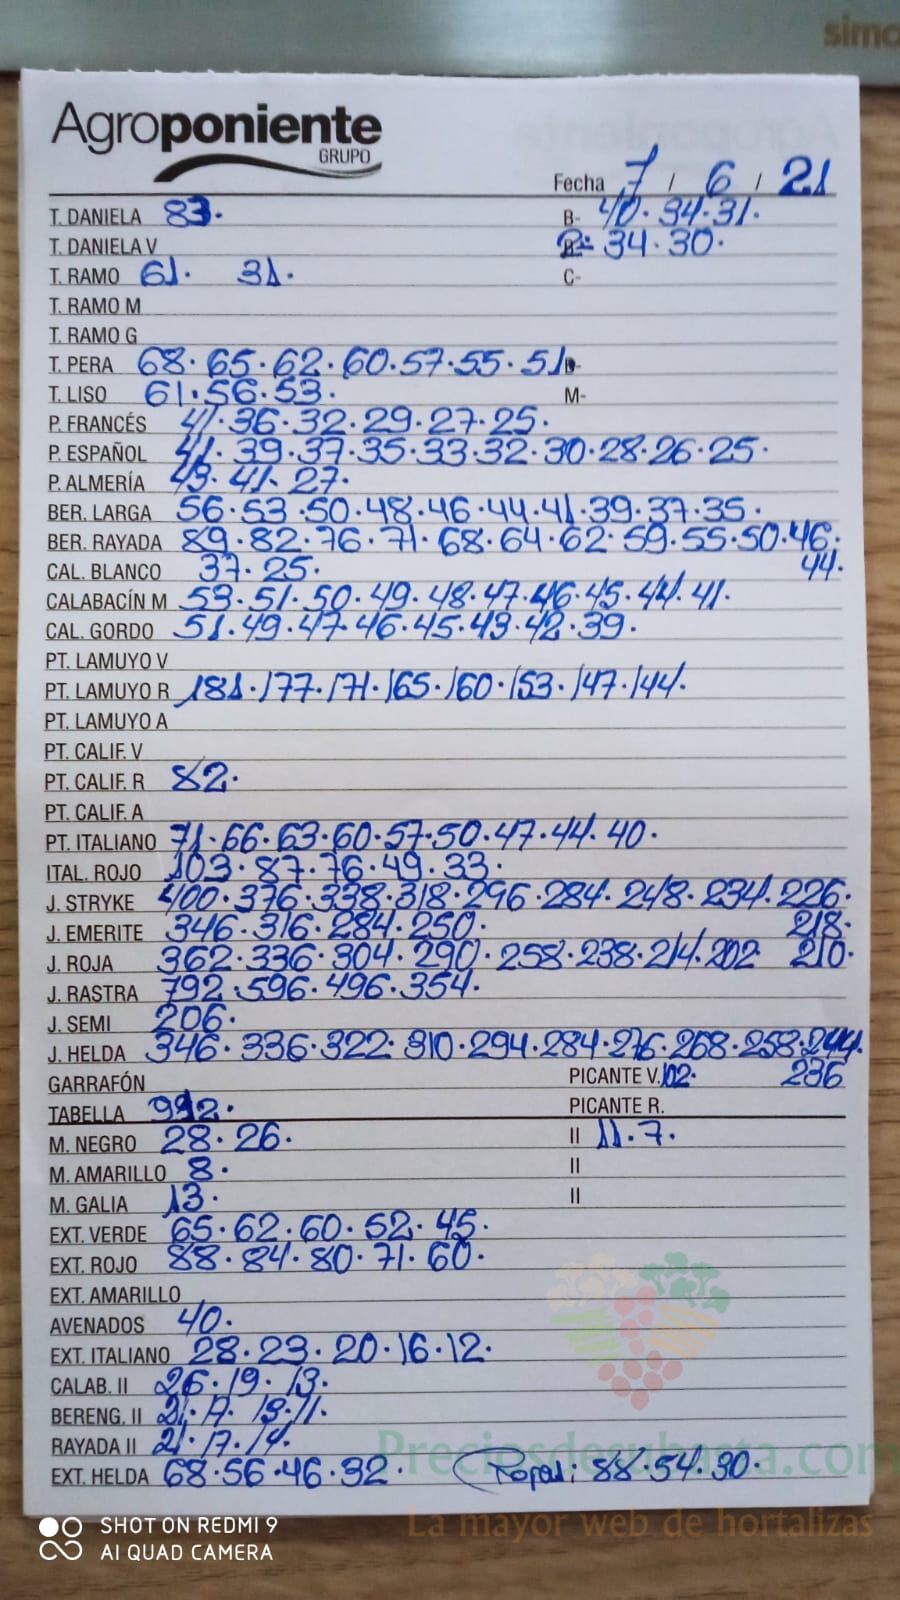 Agroponiente
GRUPO
Fecha 7 / 6 / 21
T. DANIELA 83. B- 40. 34. 31.
T. DANIELA V 2= 34. 30.
T. RAMO 61. 31. C-
T. RAMO M
T. RAMO G
T. PERA 68. 65. 62. 60. 57. 55. 51.
T. LISO 61. 56. 53. M-
P. FRANCÉS 41. 36. 32. 29. 27. 25.
P. ESPAÑOL 41. 39. 37. 35. 33. 32. 30. 28. 26. 25.
P. ALMERÍA 43. 41. 27.
BER. LARGA 56. 53. 50. 48. 46. 44. 41. 39. 37. 35.
BER. RAYADA 89. 82. 76. 71. 68. 64. 62. 59. 55. 50. 46.
CAL. BLANCO 37. 25. 44.
CALABACÍN M 53. 51. 50. 49. 48. 47. 46. 45. 44. 41.
CAL. GORDO 51. 49. 47. 46. 45. 43. 42. 39.
PT. LAMUYO V
PT. LAMUYO R 181. 177. 171. 165. 160. 153. 147. 144.
PT. LAMUYO A
PT. CALIF. V
PT. CALIF. R 82.
PT. CALIF. A
PT. ITALIANO 71. 66. 63. 60. 57. 50. 47. 44. 40.
ITAL. ROJO 103. 87. 76. 49. 33.
J. STRYKE 400. 376. 338. 318. 296. 284. 248. 234. 226.
J. EMERITE 346. 316. 284. 250. 218.
J. ROJA 362. 336. 304. 290. 258. 238. 214. 202 210.
J. RASTRA 792. 596. 496. 354.
J. SEMI 206.
J. HELDA 346. 336. 322. 310. 294. 284. 276. 268. 258. 244.
GARRAFÓN PICANTE V. 102. 236
TABELLA 992. PICANTE R.
M. NEGRO 28. 26. II 11. 7.
M. AMARILLO 8. II
M. GALIA 13. II
EXT. VERDE 65. 62. 60. 52. 45.
EXT. ROJO 88. 84. 80. 71. 60.
EXT. AMARILLO
AVENADOS 40.
EXT. ITALIANO 28. 23. 20. 16. 12.
CALAB. II 26. 19. 13.
BERENG. II 21. 17. 13. 11.
RAYADA II 21. 17. 14.
EXT. HELDA 68. 56. 46. 32. 88. 54. 30.
Preciosdesubasta.com
La mayor web de hortalizas
SHOT ON REDMI 9
AI QUAD CAMERA